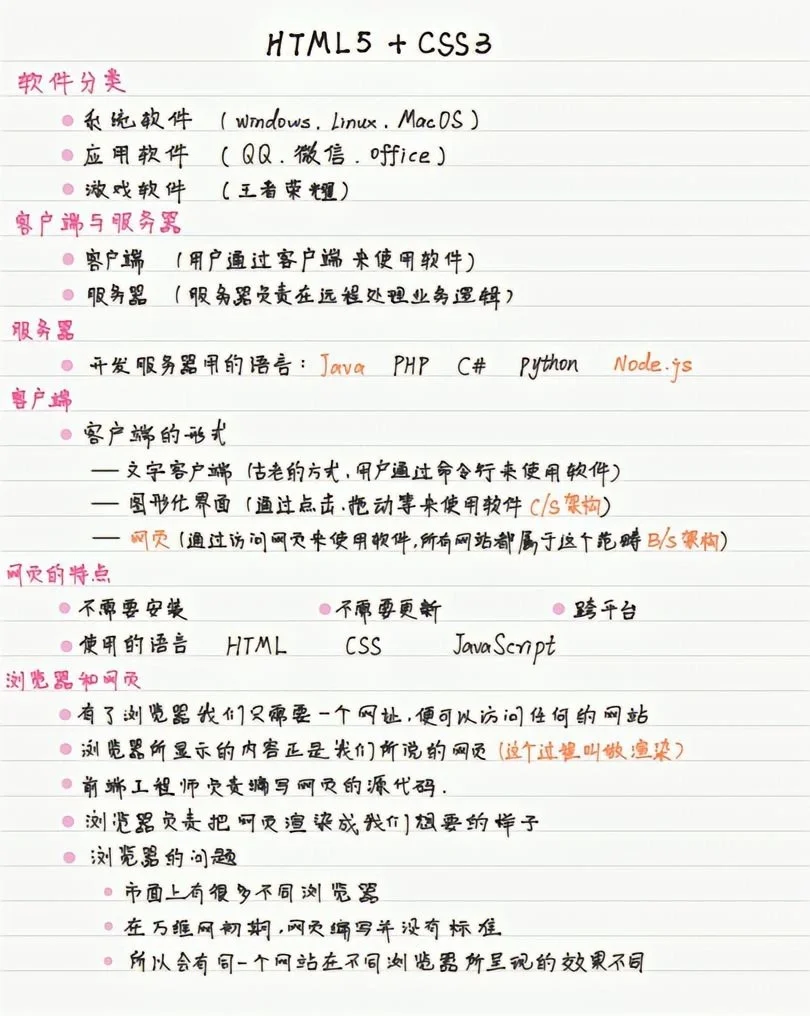 HTML5 + CSS3
软件分类
系统软件 (windows、Linux、MacOS)
应用软件 (QQ、微信、office)
游戏软件 (王者荣耀)
客户端与服务器
客户端 (用户通过客户端来使用软件)
服务器 (服务器负责在远程处理业务逻辑)
服务器
开发服务器用的语言: Java PHP C# python Node.js
客户端
客户端的形式
— 文字客户端 (古老的方式,用户通过命令行来使用软件)
— 图形化界面 (通过点击、拖动等来使用软件 C/S架构)
— 网页 (通过访问网页来使用软件,所有网站都属于这个范畴 B/S架构)
网页的特点
不需要安装 不需要更新 跨平台
使用的语言 HTML CSS JavaScript
浏览器和网页
有了浏览器我们只需要一个网址,便可以访问任何的网站
浏览器所显示的内容正是我们所说的网页 (这个过程叫做渲染)
前端工程师负责编写网页的源代码.
浏览器负责把网页渲染成我们想要的样子
浏览器的问题
市面上有很多不同浏览器
在万维网初期,网页编写并没有标准
所以会有同一个网站在不同浏览器所呈现的效果不同